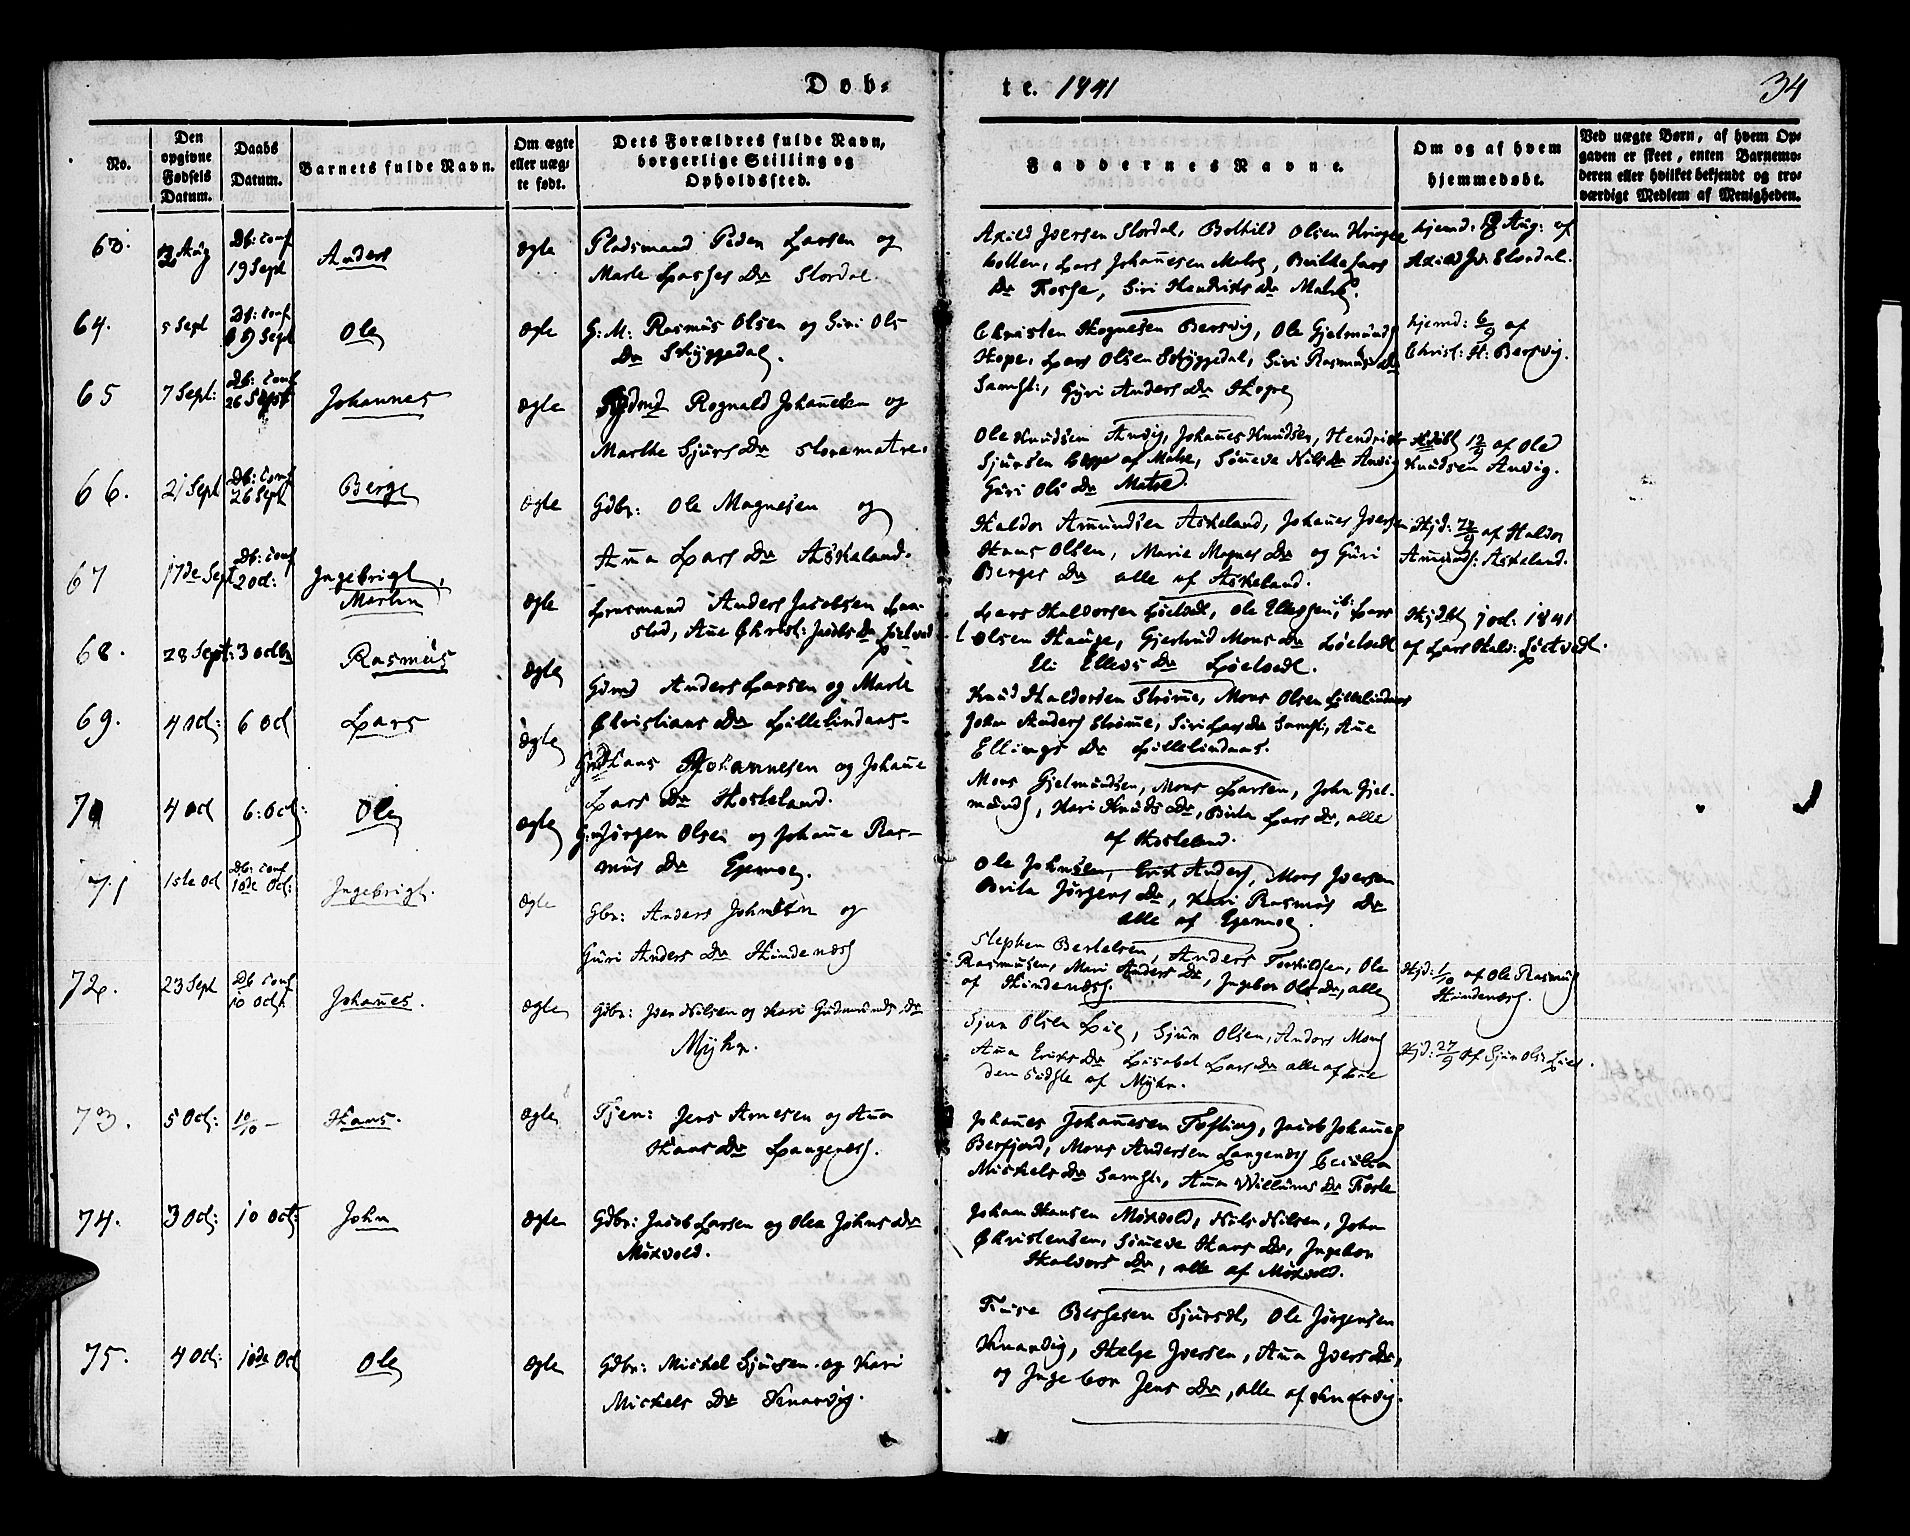 Døb-
te. 1841
34
No.
Den opgivne Fødsels Datum.
Daabs Datum.
Barnets fulde Navn.
Om ægte eller uægte født.
Dets Forældres fulde Navn, borgerlige Stilling og Opholdssted.
Faddernes Navne.
Om og af hvem hjemmedøbt.
Ved uægte Børn, af hvem Opgaven er skeet, enten Barnemoderen eller hvilket bekjendt og troværdigt Medlem af Menigheden.
63. Aug Db: conf 19 Sept Anders ægte
Pladsmand Peder Larsen og
Marte Lasses Dr Stordal.
Axild Iversen Stordal, Bothild Olsen
Lars Johannesen Matre,
Dr Fosse, Siri Hendriks Dr Matre.
hjemd: 8 Aug: af
Axild Iv: Stordal.
64. 5 Sept Db: conf 19 Sept Ole ægte
G: M: Rasmus Olsen og Siri Ols
Dr Skyggedal.
Christen Hognesen Bersvig, Ole Gjelmunds
Hope, Lars Olsen Skyggedal, Siri Rasmus Dr
Samst:, Gyri Anders Dr Hope
hjemd: 6/9 af
Christ: H: Bersvig.
65 7 Sept: Db: conf 26 Sept Johannes ægte
Rognald Johannesen og
Marthe Sjurs Dr Storematre.
Ole Knudsen Anvig, Johannes Knudsen, Hendrik
Sjursen begge af Matre, Sønneve Nils Dr Anvig
Guri Ols Dr Matre.
12/9 af Ole
Knudsen Anvig.
66. 21 Sept Db: conf 26 Sept Berge ægte
Gdbr: Ole Magnesen og
Anna Lars Dr Askeland.
Haldor Amundsen Askeland, Johannes Iversen
Hans Olsen, Marie Magnes Dr og Guri
Berges Dr alle af Askeland.
Hjd: af Haldor
Amunds: Askeland.
67 17de Sept Db: conf 2 Oct: Ingebrigt Martin ægte
Lensmand Anders Jacobsen
Lars Haldorsen Løtvedt, Ole Ellefsen ib: Lars
Olsen Hauge, Gjertrud Mons Dr Løtvedt
Eli Ellevs Dr Løtvedt.
1 Oct: 1841
af Lars Hald: Løtvedt.
68. 28 Sept: 3 Octbr Rasmus ægte
Gdmd Anders Larsen og Marte
Christians Dr Lillelindaas.
Knud Haldorsen Strømme, Mons Olsen Lillelindaas
John Anders Strømme, Siri Lars Dr Samst:, Anne
Ellings Dr Lillelindaas.
69. 4 Oct: 6 Oct Lars ægte
Hans Johannesen og Johanne
Lars Dr Hosteland.
Mons Gjelmundsen, Mons Larsen, John Gjel-
munds, Kari Knuds Dr, Brita Lars Dr, alle
af Hosteland.
70 4 Oct 6. Oct: Ole ægte
Jørgen Olsen og Johanne Ras-
mus Dr
Ole Johnsen, Erik Anders, Mons Iversen
Brita Jørgens Dr, Kari Rasmus Dr
alle af
71 1ste Oct Db: conf 10de Oct: Ingebrigt. ægte
Gbr: Anders Johnsen og
Guri Anders Dr Hindenæs
Stephen Bertelsen, Anders Torkildsen, Ole
Rasmusen, Mari Anders Dr, Ingebor Ols Dr, alle
af Hindenæs.
Hjd: 1/10 af Ole Rasmus
Hindenæs.
72. 23 Sept Db conf 10 Oct: Johannes. ægte
Gdbr: Iver Nilsen og Kari Gudmunds Dr
Myhr.
Sjur Olsen Lie, Sjur Olsen, Anders Mons
Anna Eriks Dr Lisabet Lars Dr alle af Lie
den sidste af Myhr.
Hjd: 27/9 af Sjur Ols: Lie.
73. 5 Oct: 10/10 – Hans. ægte
Tjen: Jens Arnesen og Anna
Hans Dr Langenes.
Johannes Johannesen Tofting, Jacob Johannes
Berfjord, Mons Andersen Langenæs Cecilia
Mickels Dr Samst:, Anna Willums Dr Foste
74. 3 Oct: 10 Oct: John ægte
Gdbr: Jacob Larsen og Olea Johns Dr
Moxvold.
Johan Hansen Moxvold, Nils Nilsen, John
Christensen, Sønneve Hans Dr, Ingebor
Halvors Dr, alle af Moxvold.
75. 4 Oct: 10de Oct Ole ægte
Gdbr: Mickel Sjursen og Kari
Mickels Dr Knarvig.
Besfesen Sjursd, Ole Jørgensen
Knarvig, Helge Iversen, Anna Ivers Dr,
og Ingebor Jens Dr, alle af Knarvig.